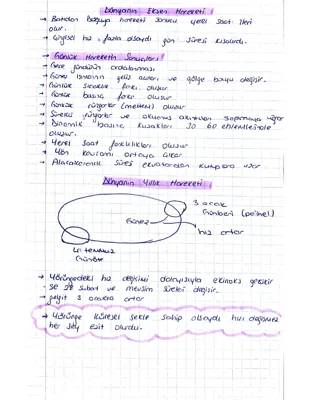 Dünyanın Eksen Hareketi:
→ Batıdan Doğuya hareketi sonucu yerel saat ileri
olur.
→ Çizgisel hız fazla olsaydı gün süresi kısalırdı.
→ Günlük Hareketin Sonuçları:
→ Gece gündüzün ardalanması
→ Güneş ışınının geliş açıları ve gölge boyu değişir.
→ Günlük sıcaklık farkı oluşur
→ Günlük basınç farkı oluşur
→ Günlük rüzgarlar (meltem) oluşur
→ Sürekli rüzgarlar ve okyanus akıntıları sapmaya uğrar
→ Dinamik basınç kuşakları 30 60 enlemlerinde
oluşur.
→ Yerel saat farklılıkları oluşur
→ Yön kavramı ortaya çıkar
→ Alacakaranlık süresi ekvatordan kutuplara artar
Dünyanın Yıllık Hareketi:
3 ocak
Günberi
Güneş
hız artar
4 temmuz
Günöte
→ Yörüngedeki hız değişimi dolayısıyla ekinoks
→ şubat ve mevsim süreleri değişir.
→ 3 ocakta artar
→ Yörünge küresel şekle sahip olsaydı hız değişmez
her şey eşit olurdu.